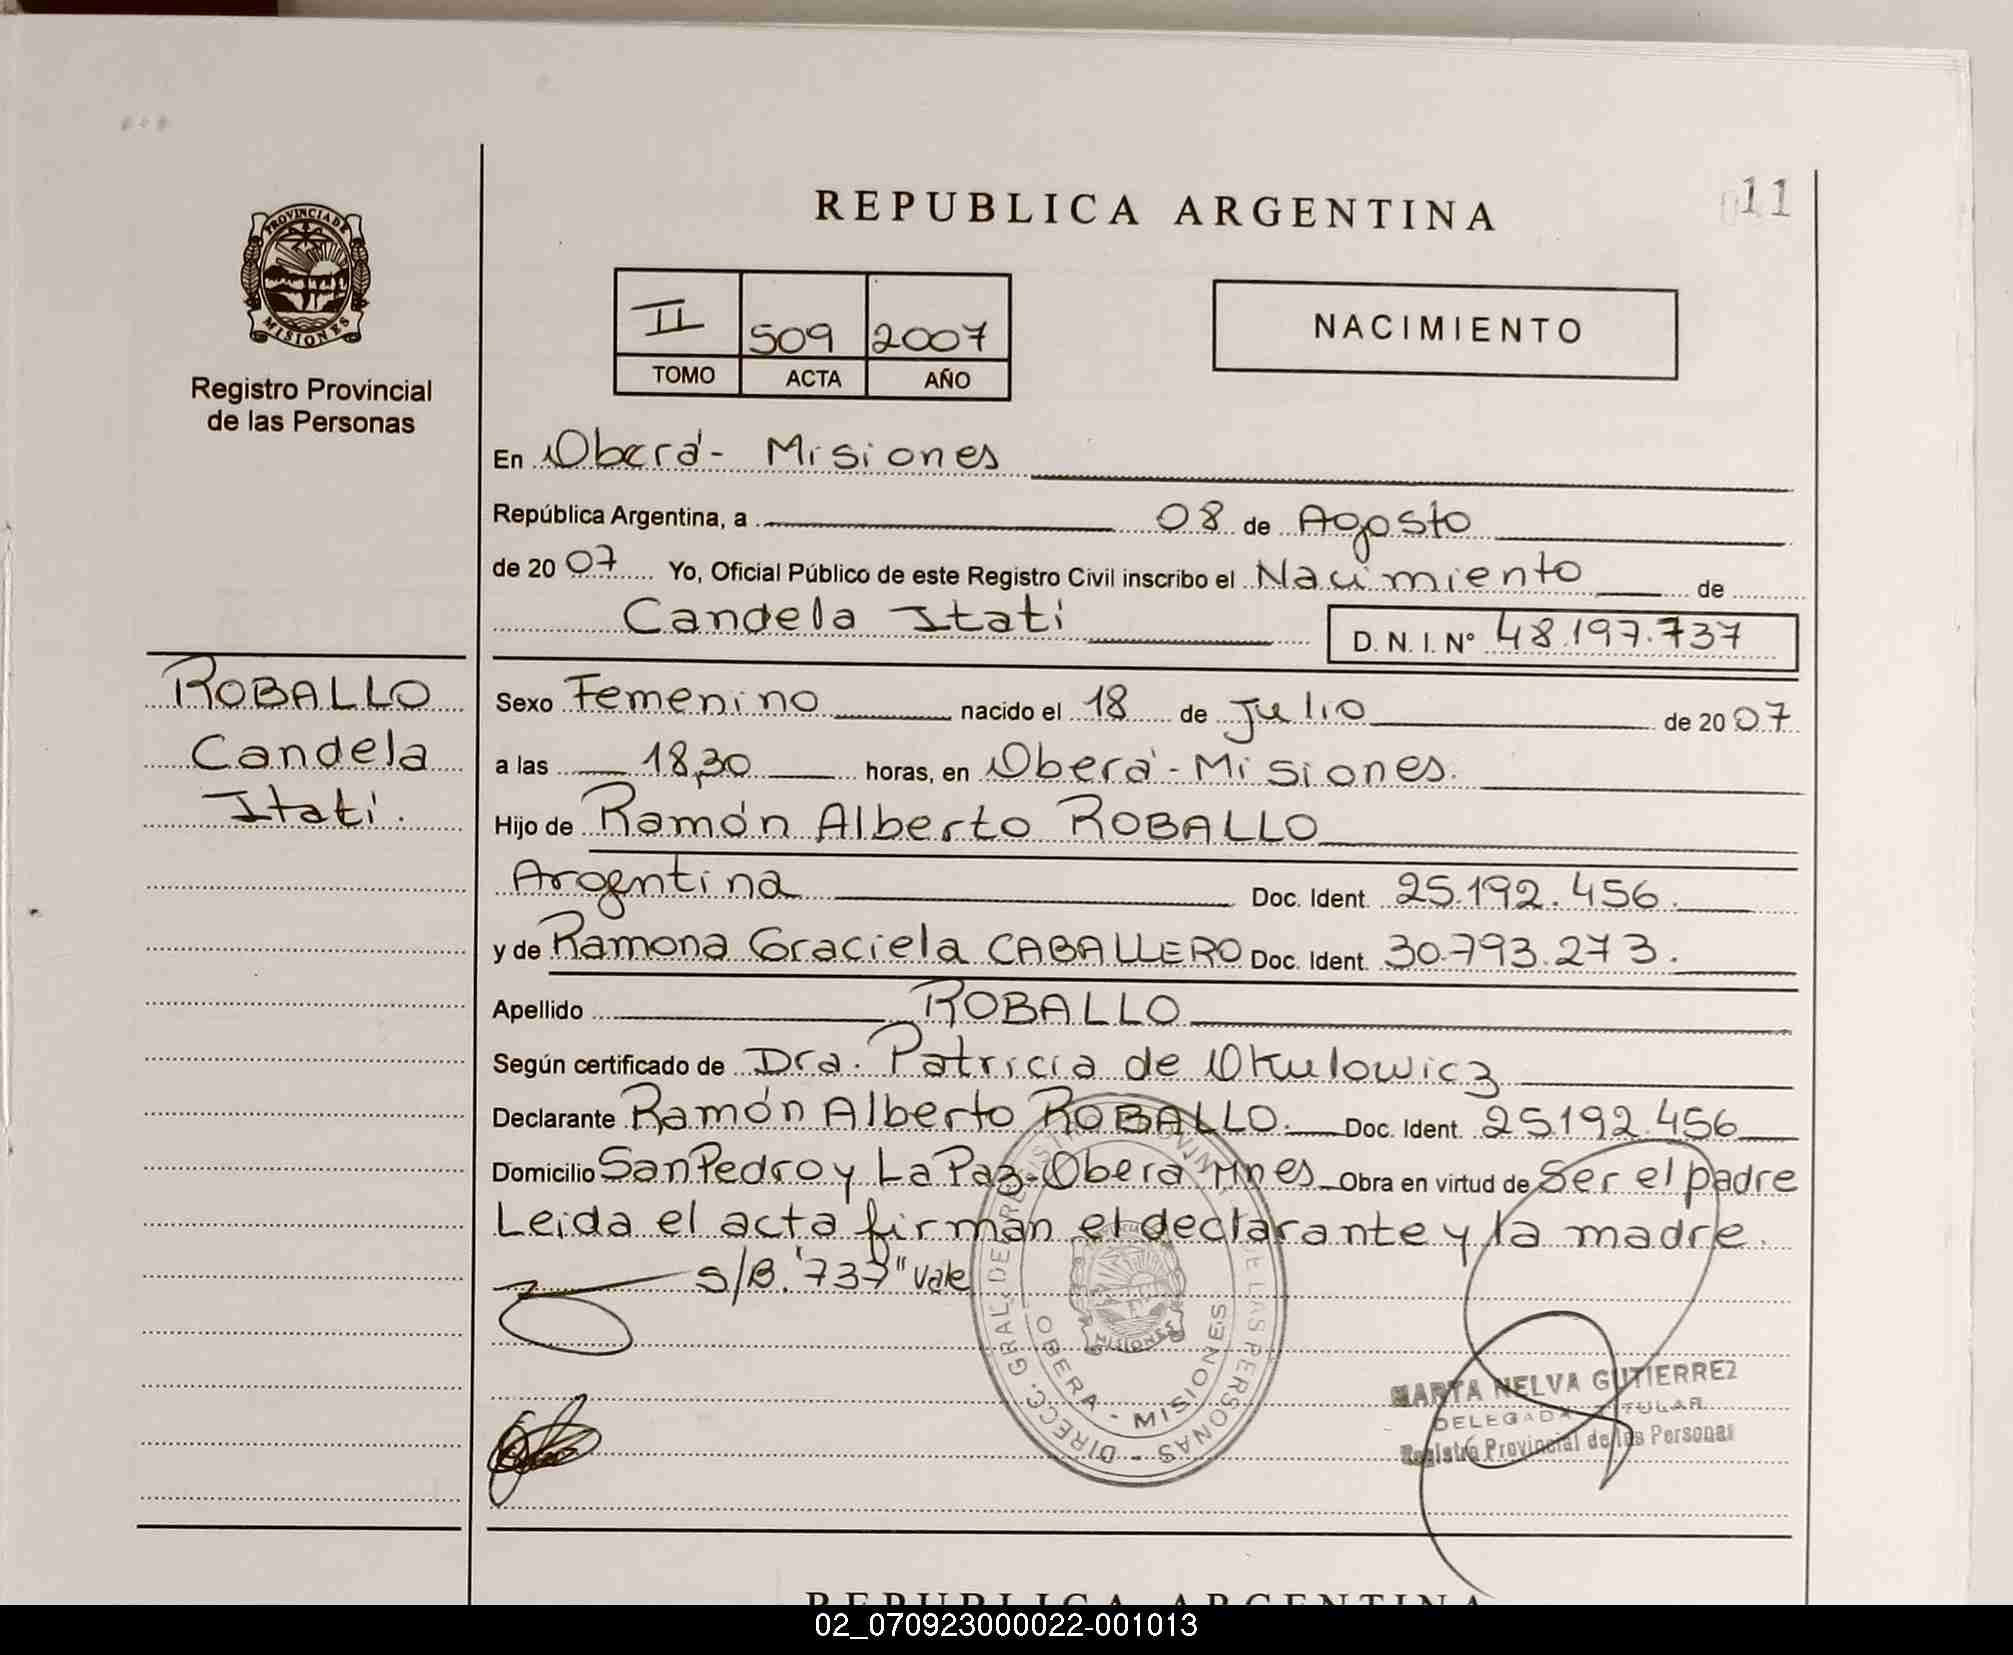 REPUBLICA ARGENTINA
11
PROVINCIA DE
MISIONES
Registro Provincial
de las Personas
II 509 2007
TOMO ACTA AÑO
NACIMIENTO
En Oberá - Misiones
República Argentina, a 08 de Agosto
de 20 07 Yo, Oficial Público de este Registro Civil inscribo el Nacimiento de
Candela Itatí D. N. I. Nº 48.197.737
ROBALLO
Candela
Itatí.
Sexo Femenino nacido el 18 de Julio de 20 07
a las 18,30 horas, en Oberá - Misiones.
Hijo de Ramón Alberto ROBALLO
Argentina Doc. Ident. 25.192.456.
y de Ramona Graciela CABALLERO Doc. Ident. 30.793.273.
Apellido ROBALLO
Según certificado de Dra. Patricia de Okulowicz
Declarante Ramón Alberto ROBALLO. Doc. Ident. 25192.456
Domicilio San Pedro y La Paz-Obera Mnes Obra en virtud de Ser el padre
Leida el acta firman el declarante y la madre.
S/B. "737" Vale
DIRECC. GRAL. DE REGISTRO PROVINCIAL DE LAS PERSONAS -
OBERA - MISIONES
MISIONES
MARTA NELVA GUTIERREZ
DELEGADA TITULAR
Registro Provincial de las Personas
REPUBLICA ARGENTINA
02_070923000022-001013